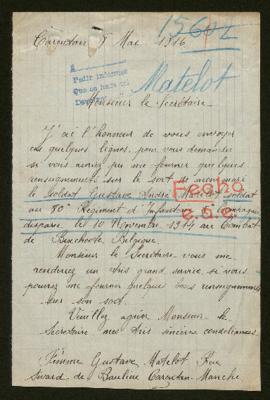 1560
Carentan 9 Mai 1916
A
Pedir informes
Matelot
Monsieur le Secrétaire.
J'ai l'honneur de vous envoyer
ces quelques lignes, pour vous demander
si vous auriez pas me fournir quelques
renseignements sur le sort de mon mari
le Soldat Gustave André Matelot soldat
Fecho
au 80e Régiment d'Infanterie
disparu le 10 Novembre 1914 au Combat
de Belgique.
Monsieur le Secrétaire vous me
renderez un très grand service, si vous
pourrez me fournir quelque renseignements
sur son sort.
Veuillez agréer Monsieur le
Secrétaire mes très sincère
Gustave Matelot Rue
Carentan Manche